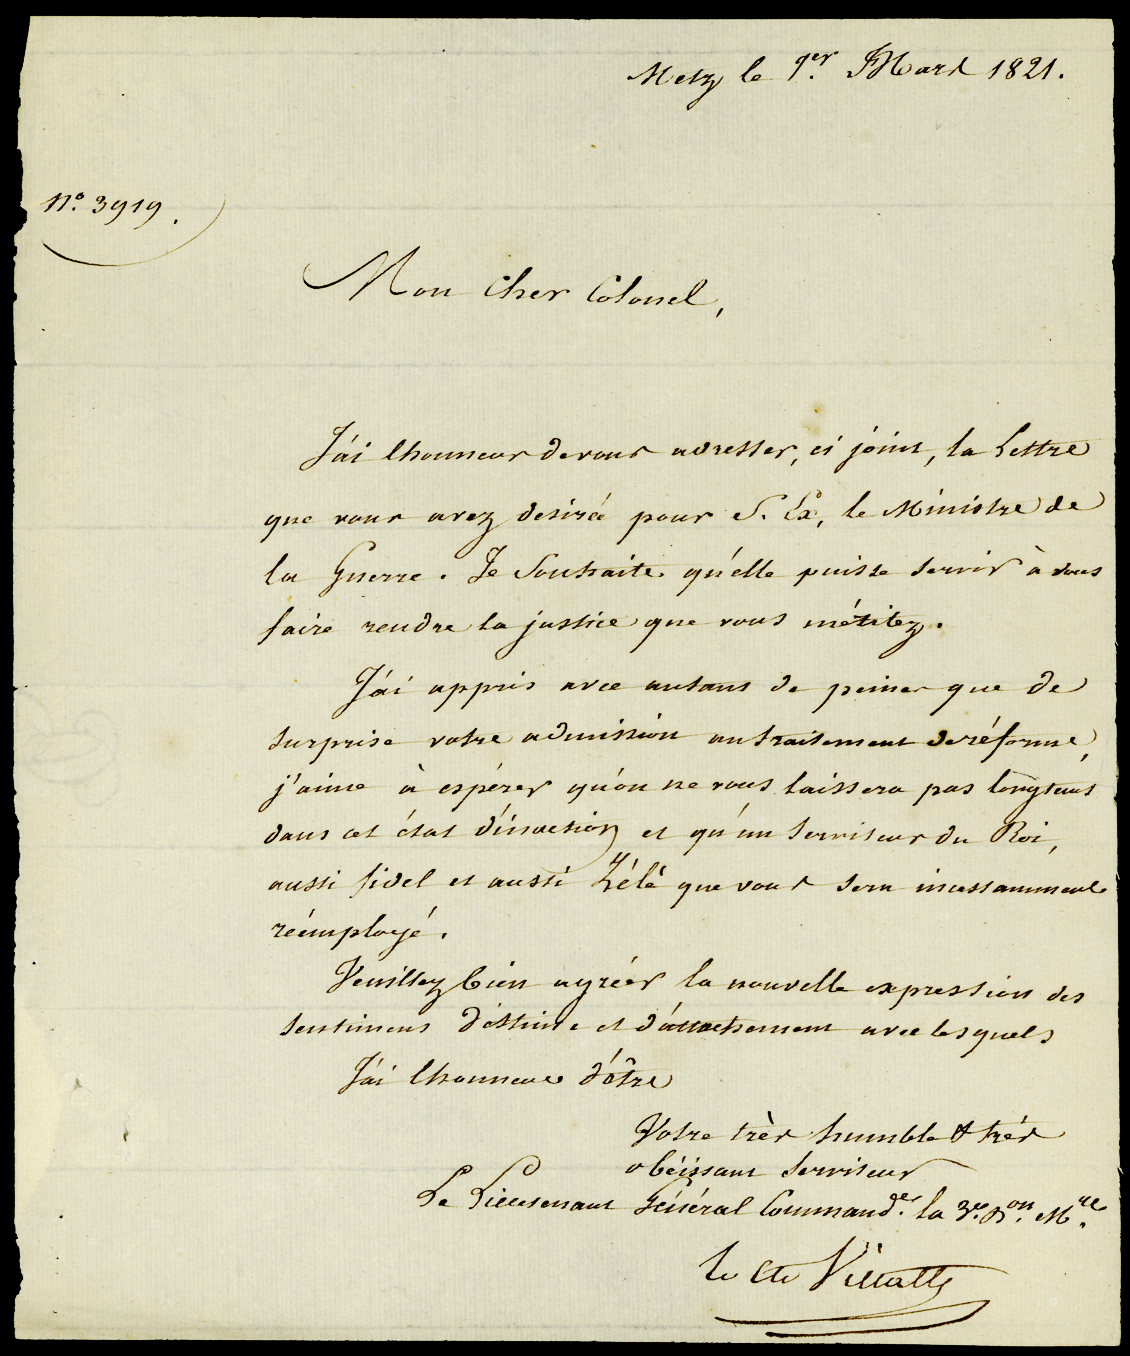 Metz le 1er. Mars 1821.
N.° 3919.
Mon Cher Colonel,
J'ai lhonneur de vous adresser, ci joint, la Lettre
que vous avez desirée pour S. Ex, le Ministre de
la Guerre. Je Souhaite qu'elle puisse servir à vous
faire rendre la justice que vous méritez.
J'ai appris avec autant de peines que de
surprise votre admission au traitement de réforme,
j'aime à espérer qu'on ne vous laissera pas longtems
dans cet état d'inaction et qu'un serviteur du Roi,
aussi fidel et aussi Zélé que vous sera incessamment
réemployé.
Veuillez bien agréer la nouvelle expression des
sentimens d'estime et d'attachement avec lesquels
J'ai lhonneur d'être
Votre très humble & très
obéissant serviteur
Le Lieutenant Général Command.der la 3.e D.on M.re
le Cte Villatte